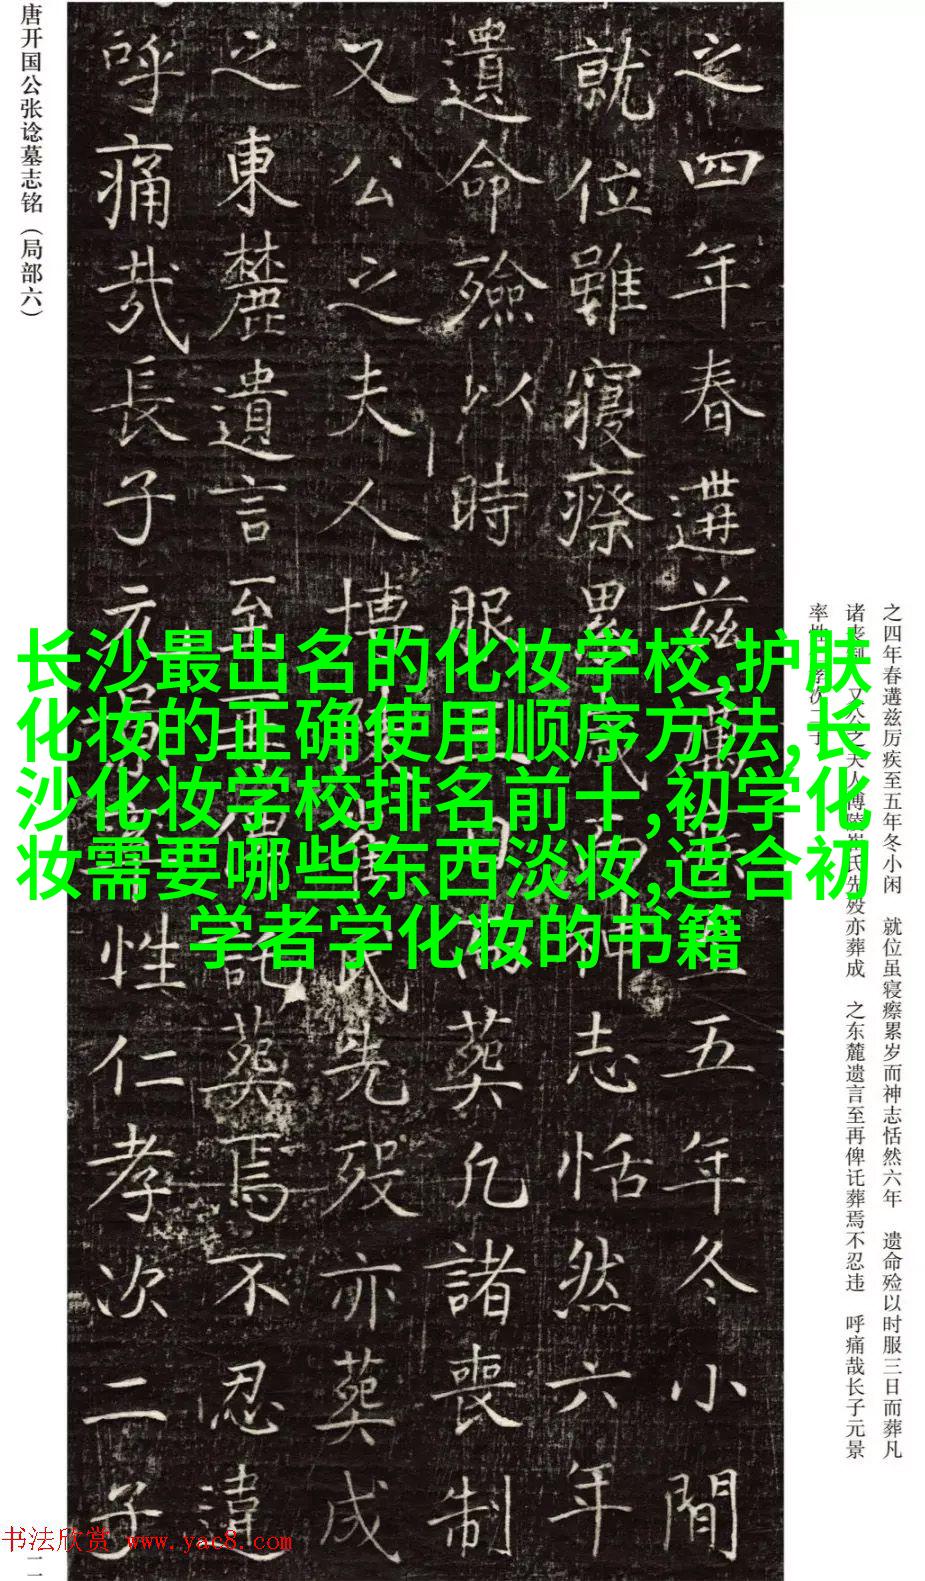 长沙最出名的化妆学校,护肤
化妆的正确使用顺序方法,长
沙化妆学校排名前十,初学化
妆需要哪些东西淡妆,适合初
学者学化妆的书籍
之四年春遘兹厉疾至五年冬小闲 就位虽寝瘵累岁而神志恬然六年 遗命殓以时服三日而葬凡
诸丧制 又公之夫人博陵崔氏先殁亦葬成 之东麓遗言至再俾讬葬焉不忍违 呼痛哉长子元景
率性 孝次二子
之四年春遘兹厲 五年冬小間
就位雖寢瘵累歲 神志恬然六年
遺命殮以時服三日而葬凡諸喪制
又公之夫人博 氏先殁亦葬成
之東麓遺言至再俾託葬焉不忍違
呼痛哉長子元景 性仁孝次二子
唐开国公张谂墓志铭（局部六）
书法欣赏 www.yac8.com
二